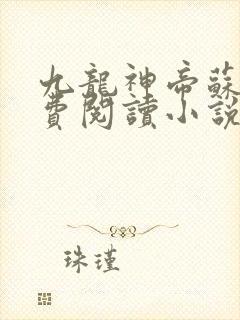 九龍神帝蘇
費閱讀小說
珠瑾